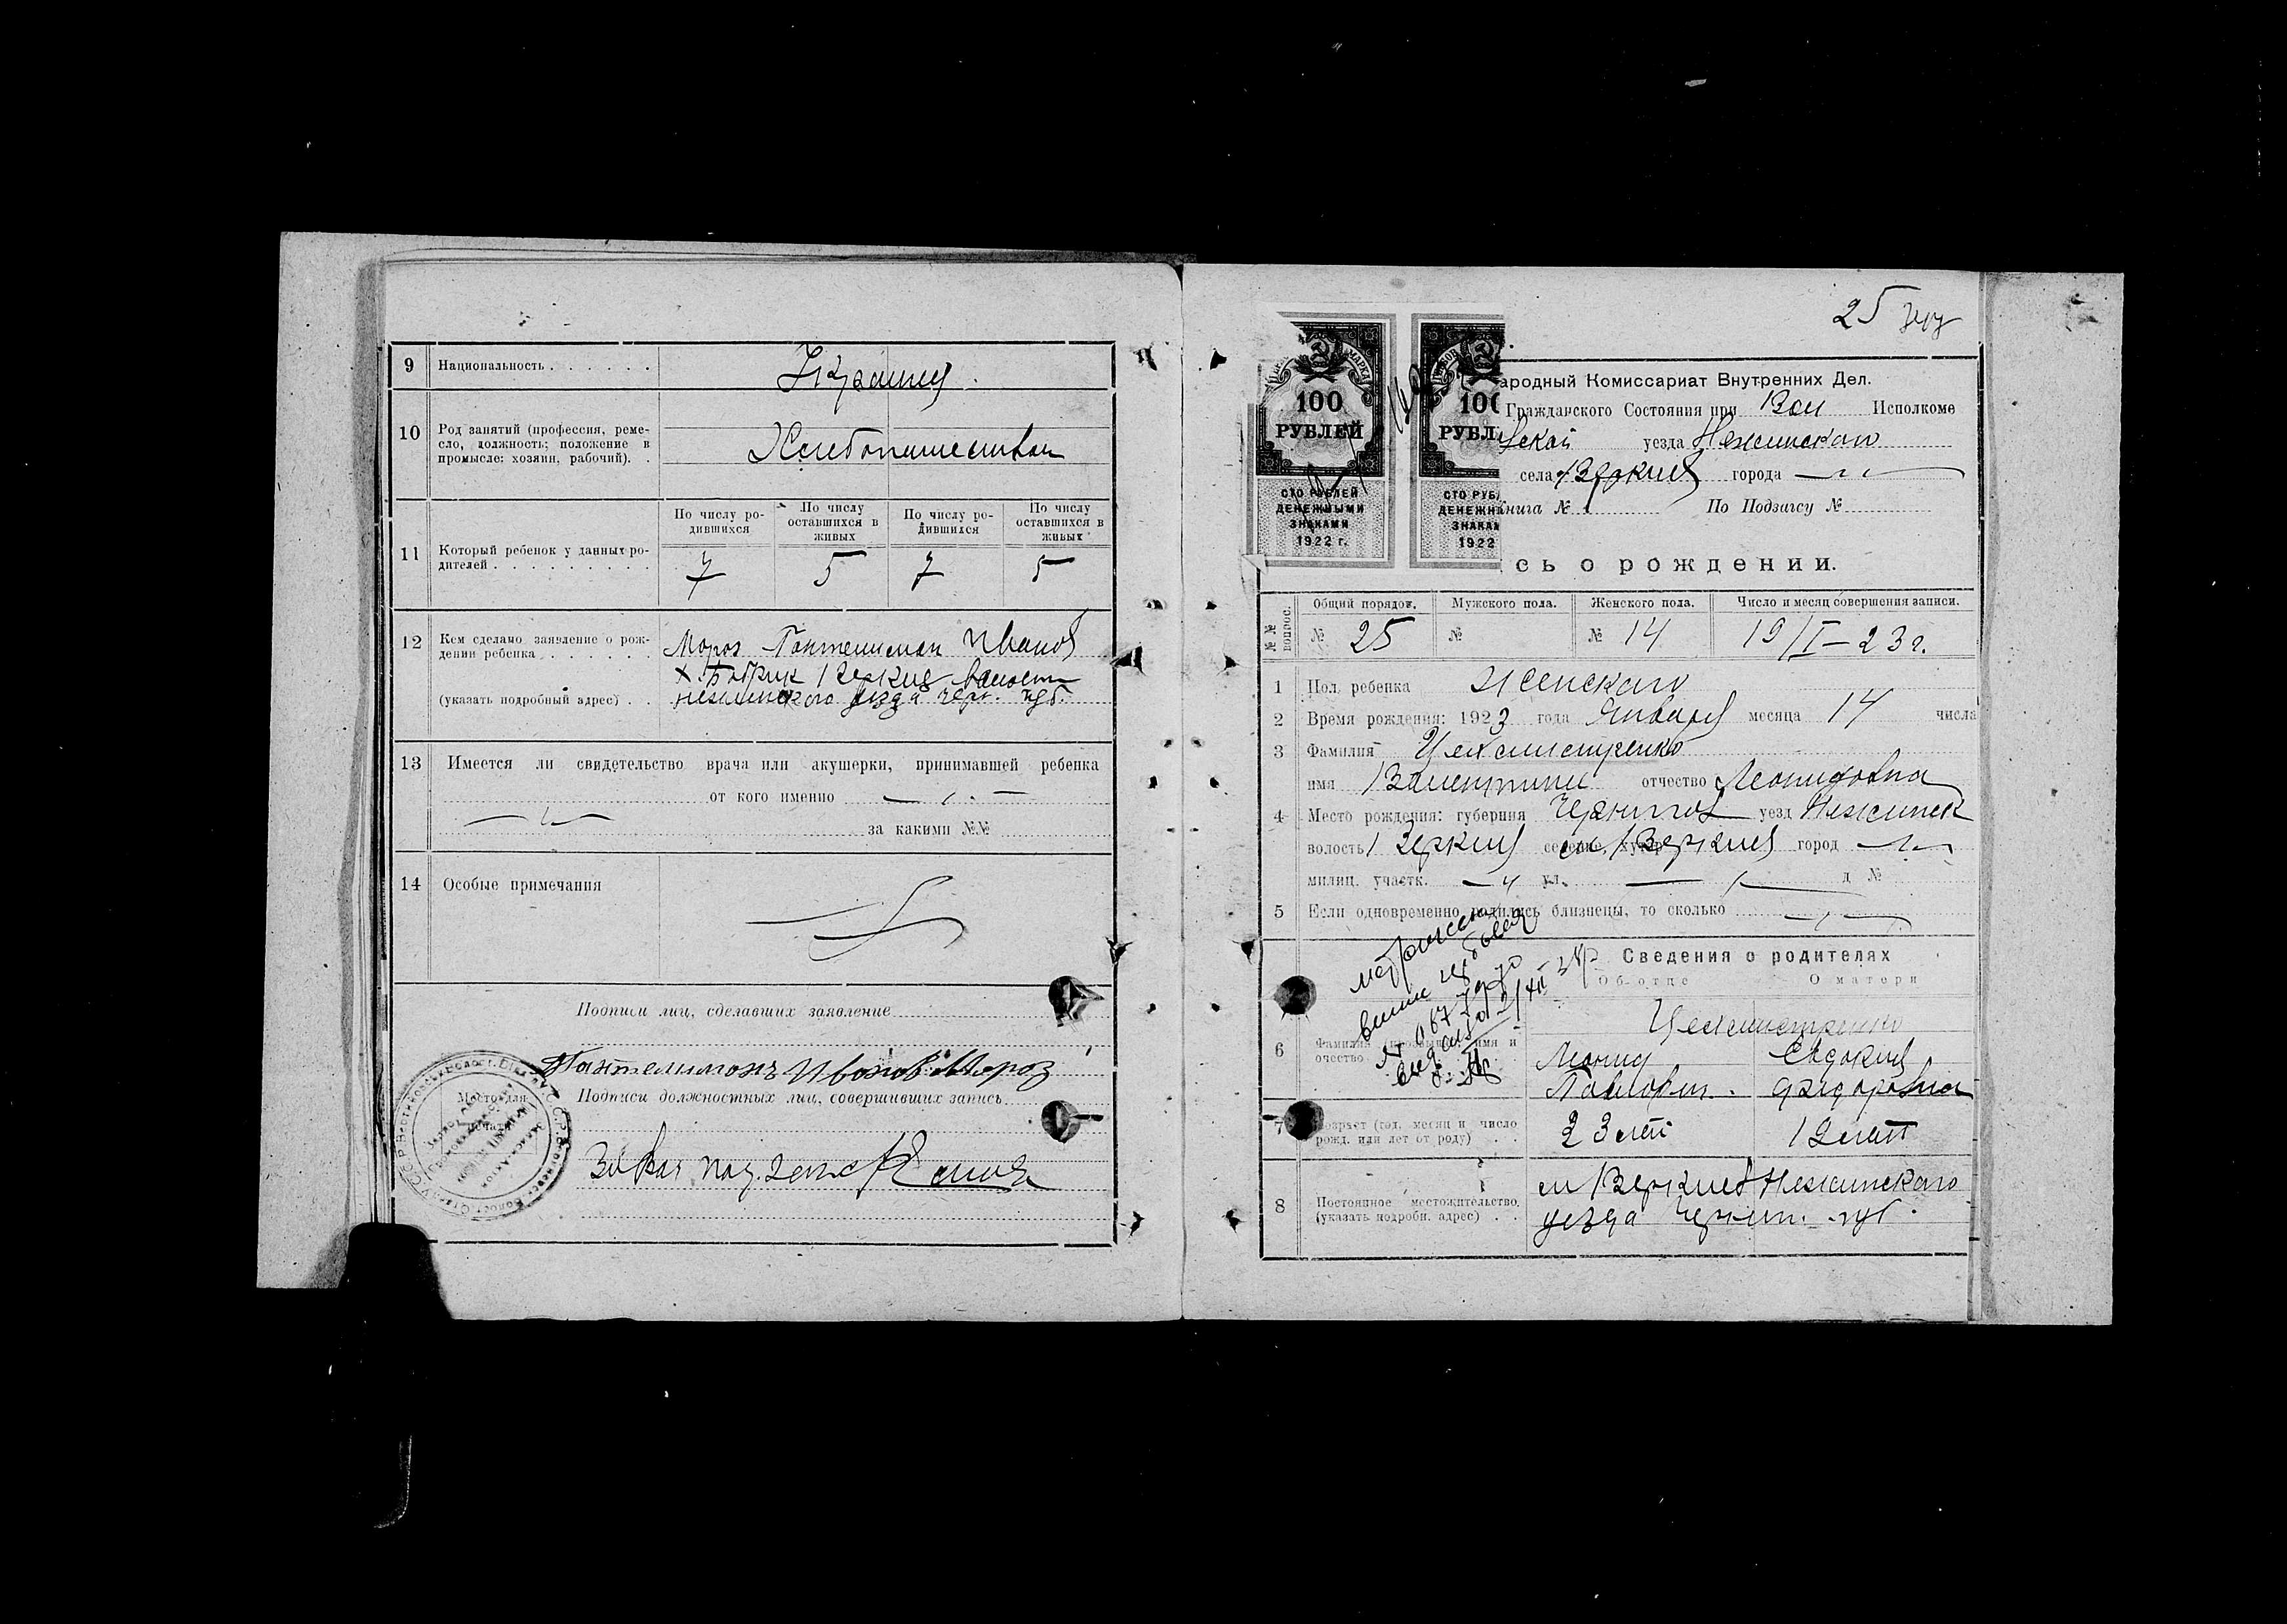 9 Национальность . . . . . .
Украинц
10 Род занятий (профессия, реме-
сло, должность; положение в
промысле: хозяин, рабочий). .
Хлебопашеством
11 Который ребенок у данных ро-
дителей . . . . . . . . .
По числу ро-
дившихся
По числу
оставшихся в
живых
По числу ро-
дившихся
По числу
оставшихся в
живых
7 5 7 5
12 Кем сделано заявление о рож-
дении ребенка . . . . . .
(указать подробный адрес) . .
Мороз Пантелимон Иванов
х. Бобрик Веркиев волости
нежинского уезда черн. губ.
13 Имеется ли свидетельство врача или акушерки, принимавшей ребенка
от кого именно
за какими №№
14 Особые примечания
Подписи лиц, сделавших заявление
Пантелимонъ Ивонов Мороз
Подписи должностных лиц, совершивших запись
Место для
печати
25
100
РУБЛЕЙ
СТО РУБЛЕЙ
ДЕНЕЖНЫМИ
ЗНАКАМИ
1922 г.
100
РУБЛ
СТО РУБ
ДЕНЕЖН
ЗНАКА
1922
ародный Комиссариат Внутренних Дел.
Гражданского Состояния при Вол Исполкоме
ской уезда Нежинского
села Веркиев города
нига № По Подзагсу №
сь о рождении.
№№ вопрос.
Общий порядок. Мужского пола. Женского пола. Число и месяц совершения записи.
№ 25 № № 14 19/I–23 г.
1 Пол ребенка Женского
2 Время рождения: 1923 года Января месяца 14 числа
3 Фамилия Цехмистренко
имя Валентина отчество Леонидовна
4 Место рождения: губерния Чернигов уезд Нежинск
волость Веркиев селение, хутор м Веркиев город
милиц. участк. ул. д №
5 Если одновременно родились близнецы, то сколько
Сведения о родителях
Об отце О матери
Цехмистренко
6 Фамилия (прозвище), имя и
отчество
Леонид Евдокия
Павлович. Федоровна
7 Возраст (год, месяц и число
рожд. или лет от роду) . .
23 лет
8 Постоянное местожительство
(указать подробн. адрес) . .
м Веркиев Нежинского
уезда Черниг. губ.